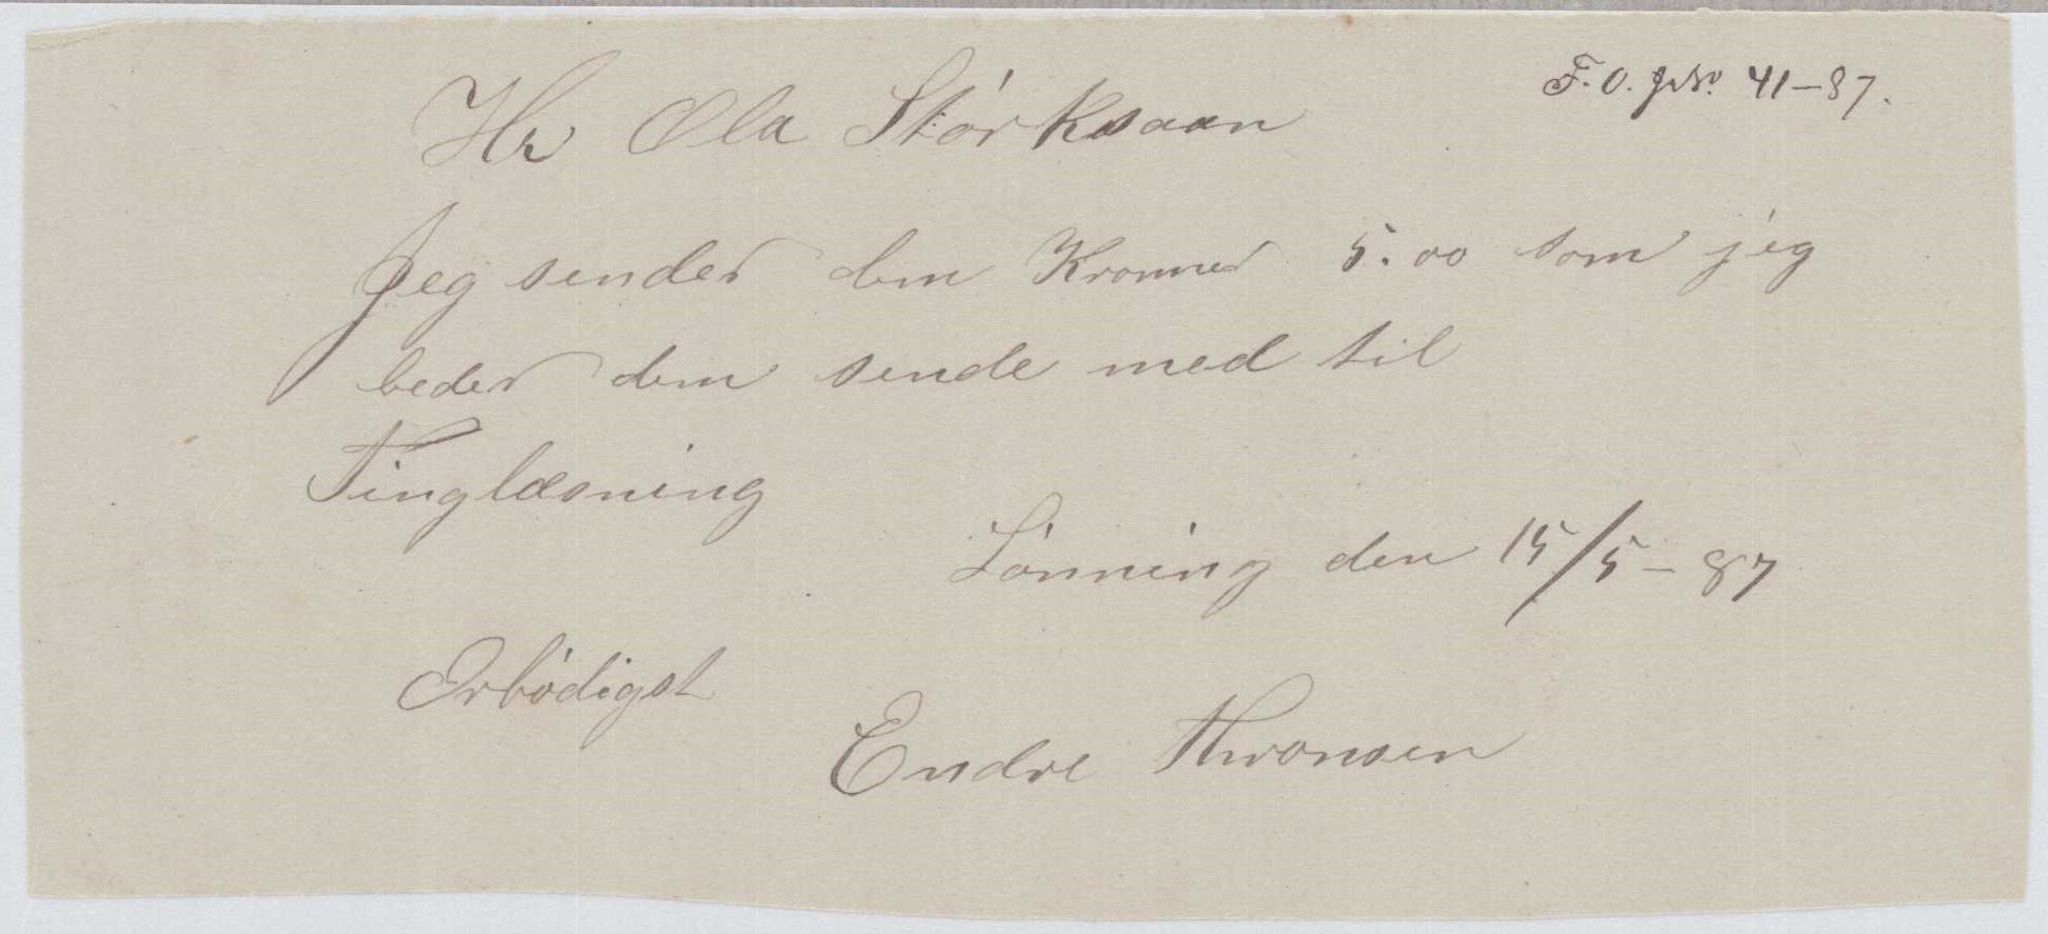 F. O. J.No. 41-87.
Hr Ola Størksaan
Jeg sender dem Kroner 5.00 som jeg
beder dem sende med til
Tinglæsning
Lønning den 15/5-87
Ærbødigst
Endre Thronsen